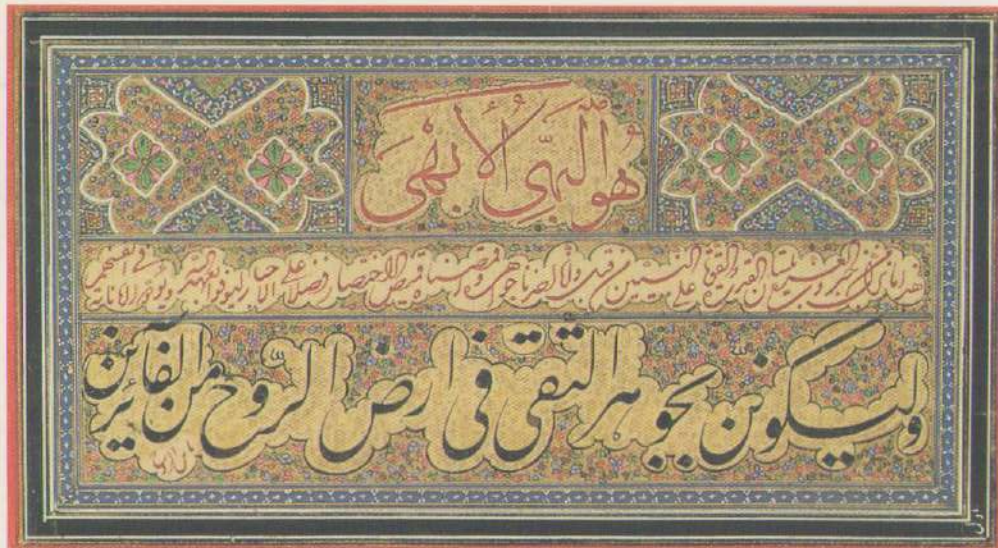 هو البَهِیُّ الأَبهَی
هذا ما نزل من جبروت العزة بلسان القدرة و القوة علی النبیین من قبل و انا اخذنا جواهره و اقمصناه قمیص الاختصار فضلا علی الاحبار لیوفوا بعهد الله و یؤدوا اماناته فی انفسهم
ولیکونن بجوهر التقی فی ارض الرّوح من الفآئزین